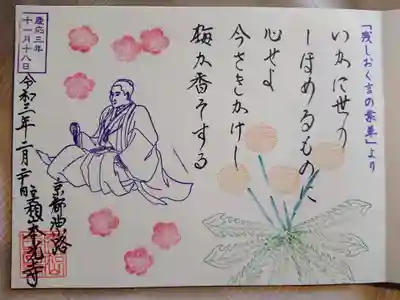 「残しおく言の葉草」より
いかに世の
しほめるものに
心せよ
今さきかけし
梅か香そする
慶応三年
十一月十八日
京都油小路
山本光寺
令和三年 二月